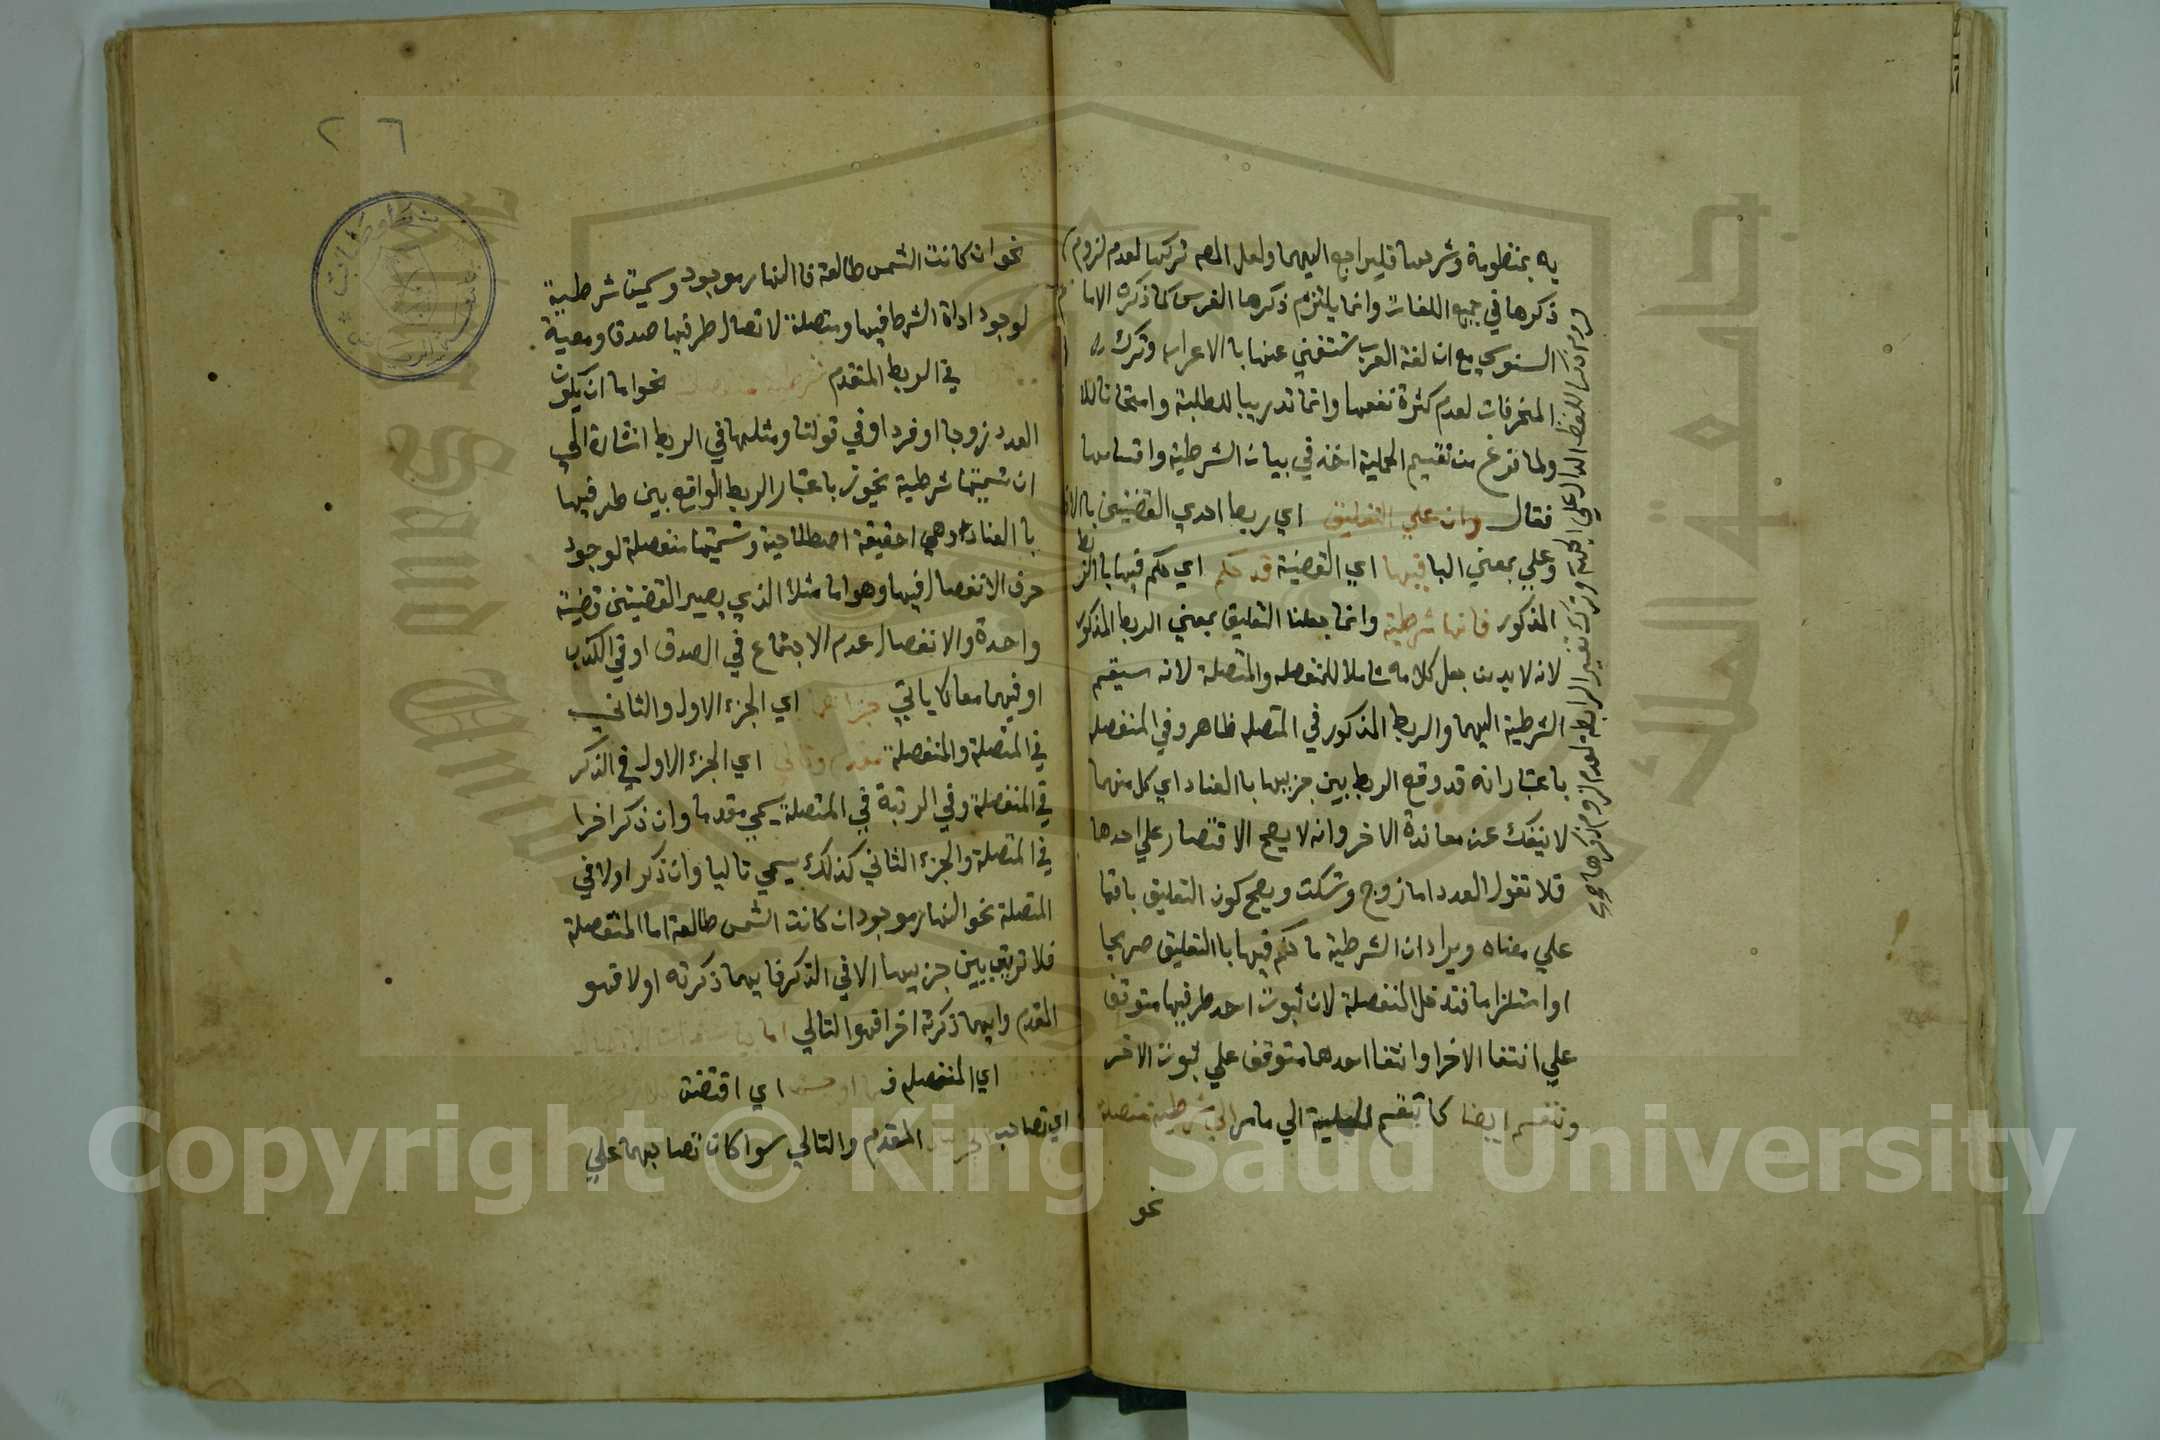 يه بمنظومة وشرحها فليراجع اليهما ولعل المصه تركها لعدم لزوم
ذكرها في جميع اللغات وانما يلتزم ذكرها الفرس كما ذكره الاما
السنوسي مع ان لغة العرب تستغني عنها بالاعراب وترك
المنحرفات لعدم كثرة نفعها وانما تدريبا للطلبة وامتحانا للا
ولما فرغ من تقسيم الحملية اخذ في بيان الشرطية واقسامها
فقال وان علي التعليق اي ربط احدي القضيتين باالا
وعلي بمعني البا فيها اي القضية قد حكم اي حكم فيها باالربط
المذكور فانها شرطية وانما جعلنا التعليق بمعني الربط المذكور
لانه لا بد من جعل كلامه شاملا للمنفصله والمتصلة لانه سيقسم
الشرطية اليهما والربط المذكور في المتصله ظاهر وفي المنفصله
باعتبار انه قد وقع الربط بين جزييها باالعناد اي كل منهما
لا ينفك عن معاندة الاخر وانه لا يصح الاقتصار علي احدها
فلا تقول العدد اما زوج وتسكت ويصح كون التعليق باقيا
علي معناه ويراد ان الشرطية ما حكم فيها باالتعليق صريحا
او استلزاما فتدخل المنفصلة لان ثبوت احد طرفيها متوقف
علي انتفا الاخر او انتفا احدهما متوقف علي ثبوت الاخر
وتنقسم ايضا كما تنقسم الحملية الي ما مر الي شرطية متصلة
نحو
ومر ان ذكر اللفظ الدال علي الجهة وترك تغيير الرابطة لعدم لزوم ذكرها
٢٦
نحو ان كانت الشمس طالعة فاالنهار موجود وسميت شرطية
لوجود اداة الشرط فيها ومتصلة لاتصال طرفيها صدقا ومعية
في الربط المتقدم نحو اما ان يكون
العدد زوجا او فردا وفي قولنا ومثلها في الربط اشارة الي
ان تسميتها شرطية تجوز باعتبار الربط الواقع بين طرفيها
باالعناد وهي احقيقة اصطلاحية وتسميتها منفصلة لوجود
حرف الانفصال فيها وهو اما مثلا الذي يصير القضيتين قضية
واحدة والانفصال عدم الاجتماع في الصدق او في الكذب
او فيهما معا كما ياتي جزاهما اي الجزء الاول والثاني
في المتصلة والمنفصلة مقدم وتالي اي الجزء الاول في الذكر
في المنفصلة وفي الرتبة في المتصلة يسمي مقدما وان ذكر اخرا
في المتصلة والجزء الثاني كذلك يسمي تاليا وان ذكر اولا في
المتصلة نحو النهار موجود ان كانت الشمس طالعة اما المنفصلة
فلا ترتيب بين جزييها الا في الذكر فايهما ذكرته اولا فهو
المقدم وايهما ذكرته اخرا فهو التالي اما
اي المنفصله اي اقتضت
اي تصاحب المقدم والتالي سوا كان تصاحبهما علي
Copyright © King Saud University